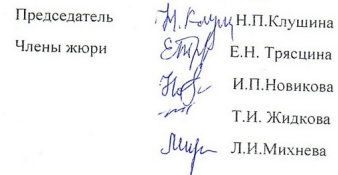 Председатель Н.П.Клушина
Члены жюри Е.Н. Трясцина
И.П.Новикова
Т.И. Жидкова
Л.И.Михнева